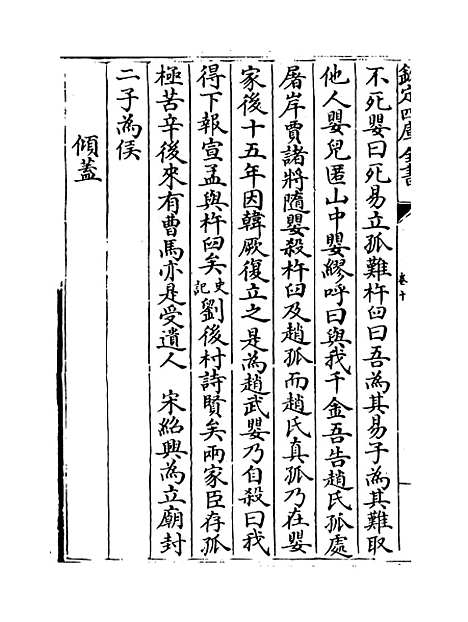 欽定四庫全書
卷十
不死嬰曰死易立孤難杵臼曰吾為其易子為其難取
他人嬰兒匿山中嬰繆呼曰與我千金吾告趙氏孤處
屠岸賈諸將隨嬰殺杵臼及趙孤而趙氏真孤乃在嬰
家後十五年因韓厥復立之是為趙武嬰乃自殺曰我
得下報宣孟與杵臼矣史記劉後村詩賢矣兩家臣存孤
極苦辛後來有曹馬亦是受遺人　宋紹興為立廟封
二子為侯
傾蓋